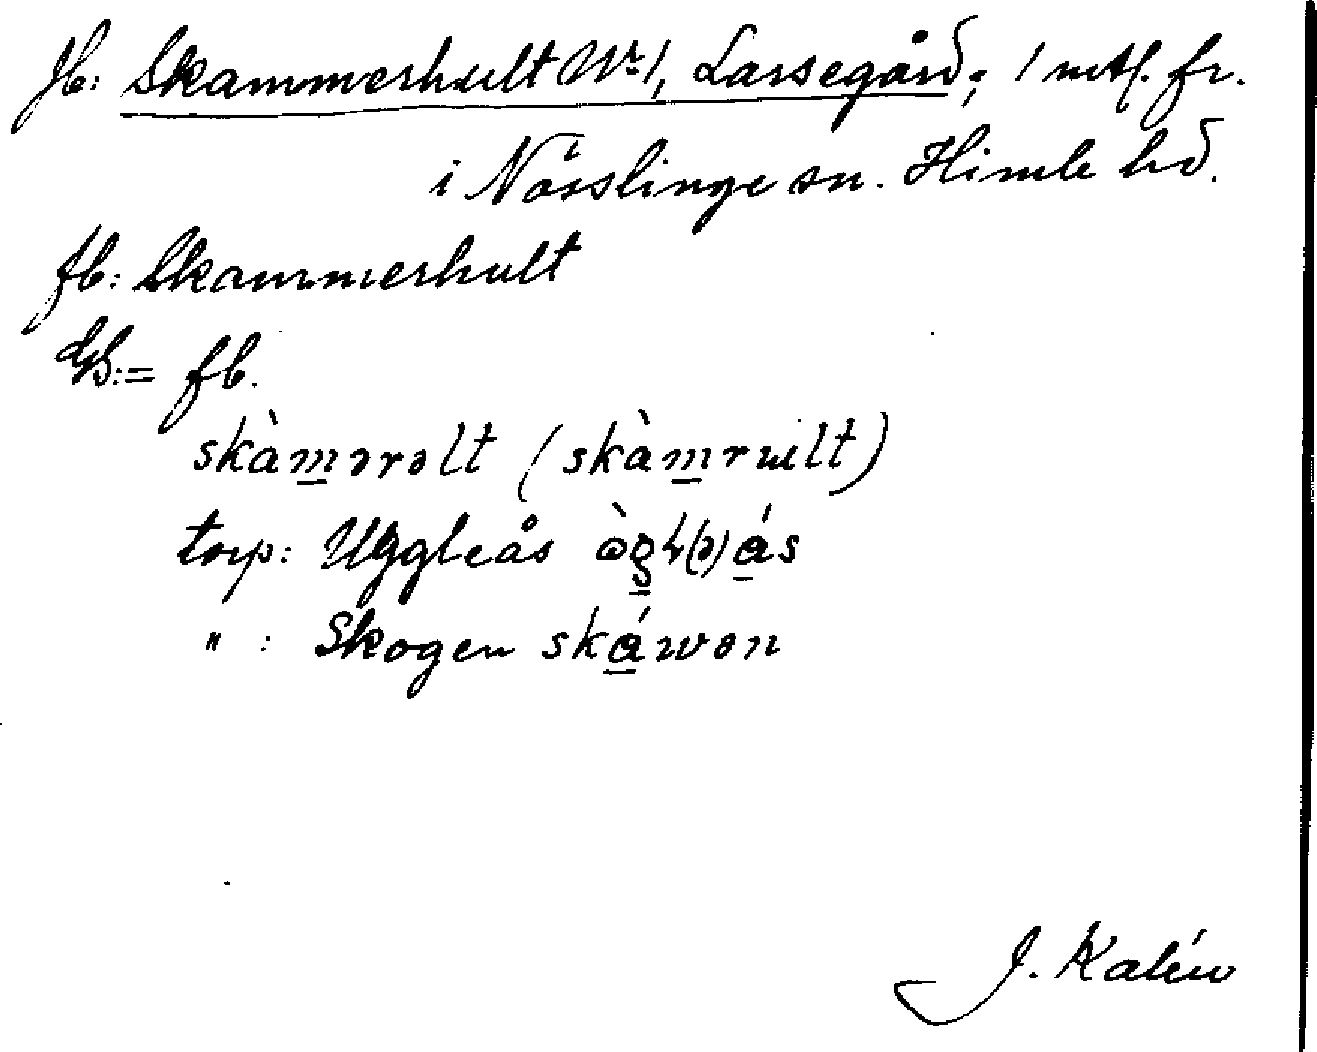 Jb: Skammerhult Nr. 1, Larsegård; 1 mtl. fr.
i Nösslinge sn. Himle hd.
fb: Skammerhult
GS: = fb.
skàm̲ərəlt (skàm̲rɯlt)
torp: Uggleås ògɫ(ə)á̲s
" : Skogen ská̲wən
J. Kalén